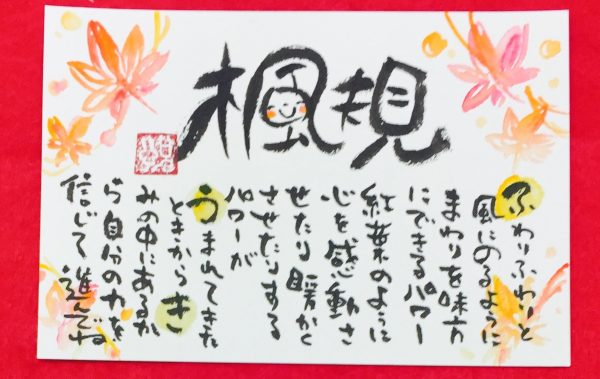 楓規
ふわりふわりと
風にのるように
まわりを味方
にできるパワー
紅葉のように
心を感動さ
せたり暖かく
させたりする
パワーが
うまれてきた
ときからき
みの中にあるか
ら自分の力を
信じて進んでね